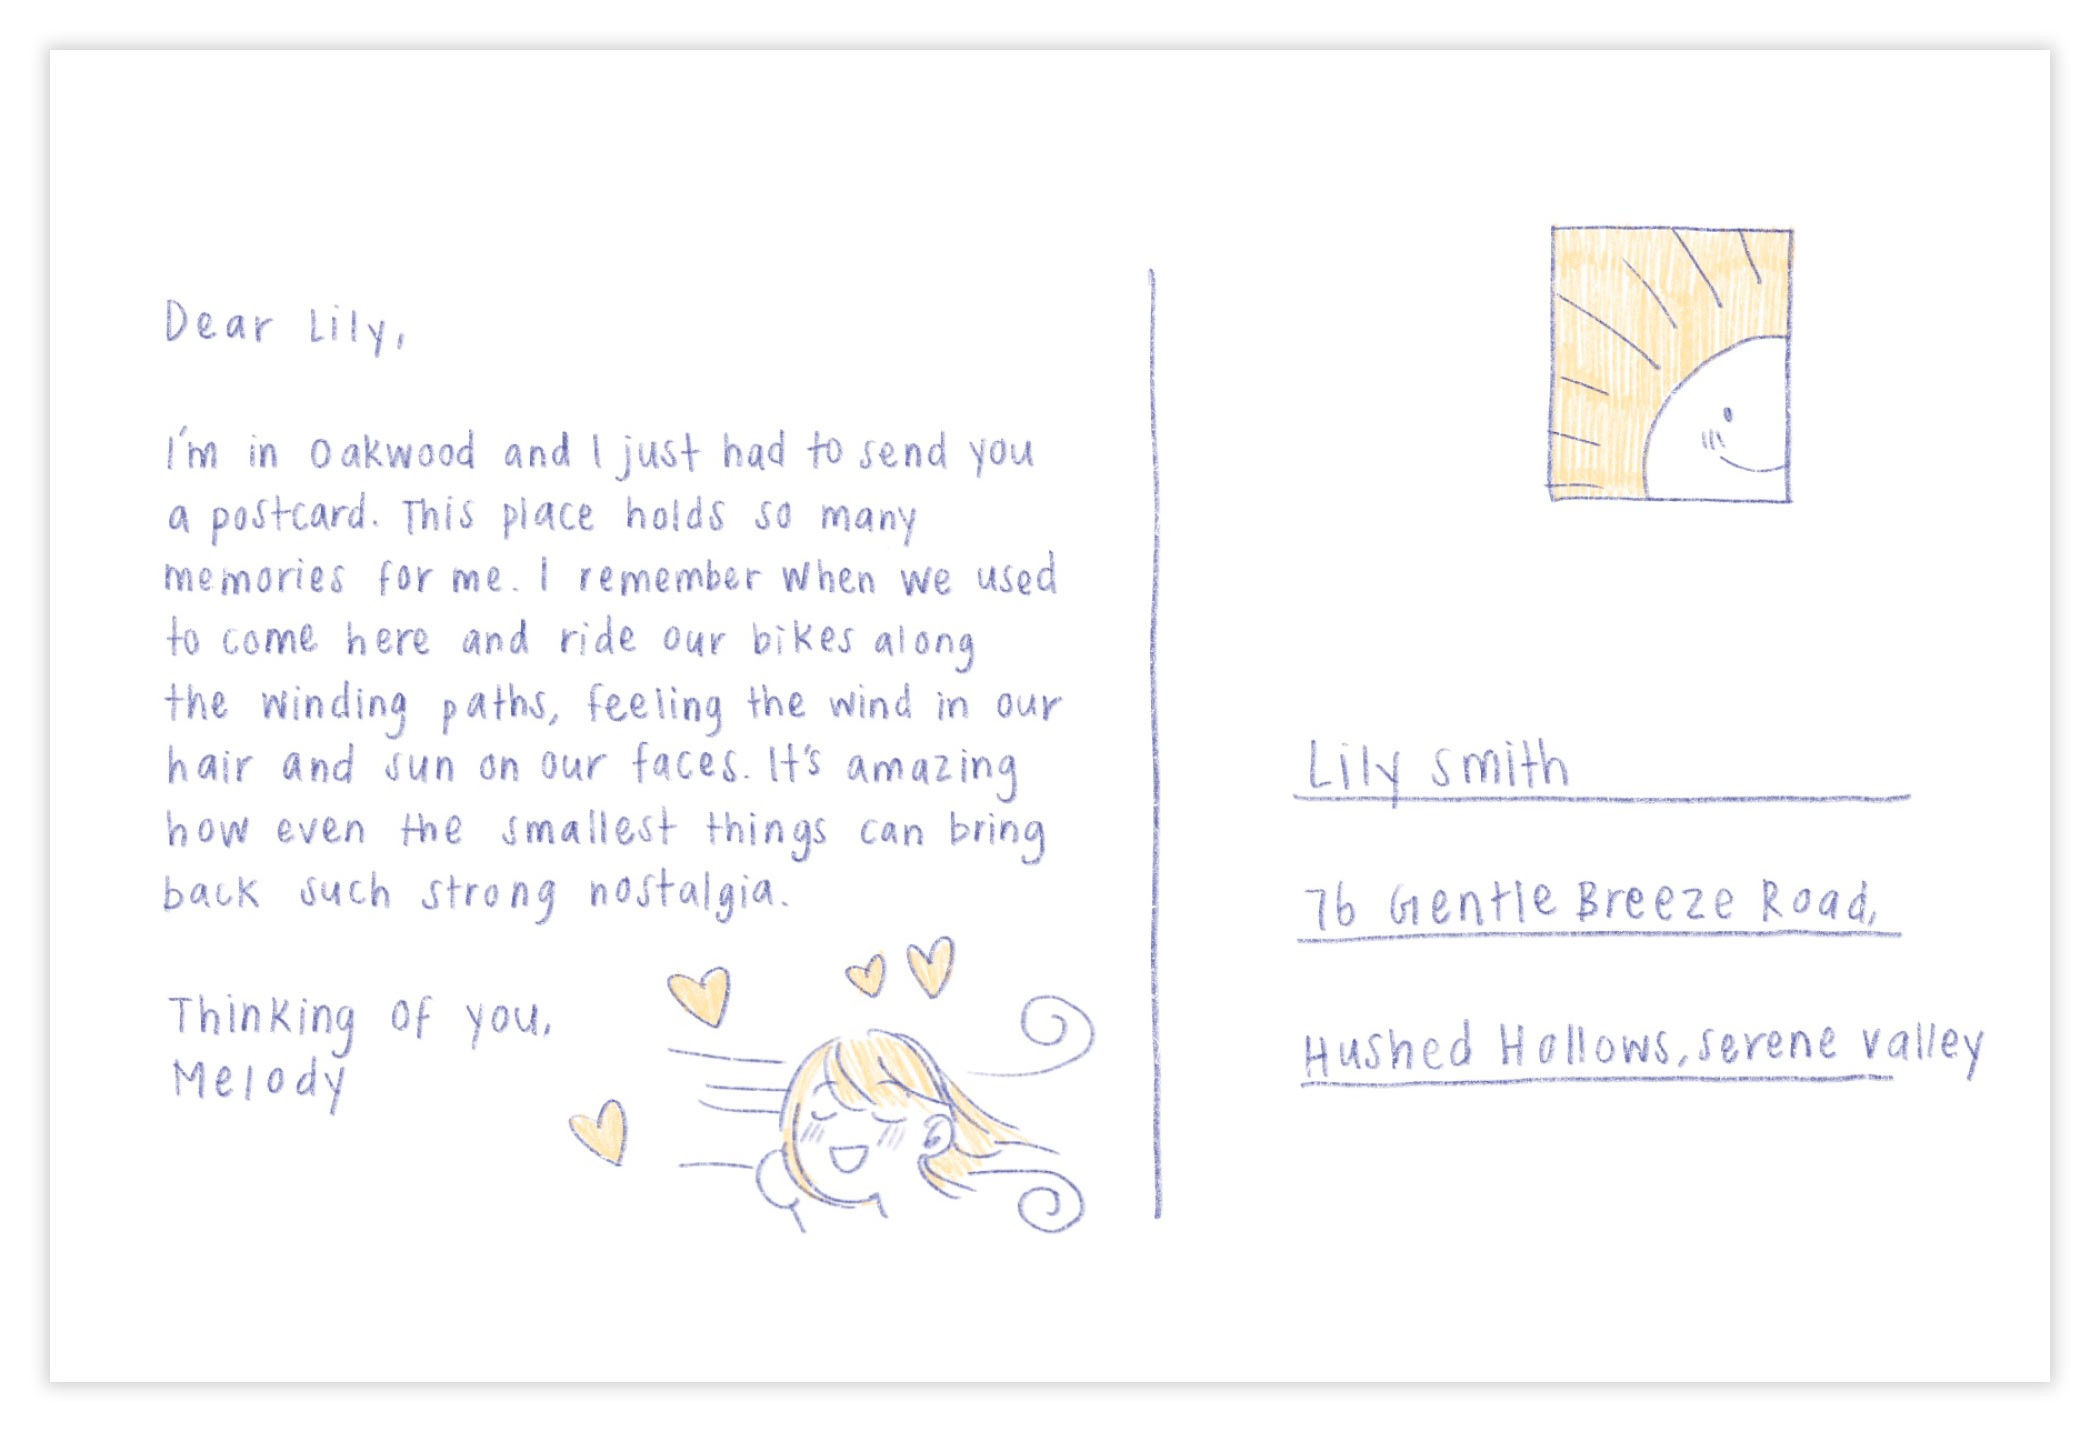 Dear Lily,
I'm in Oakwood and I just had to send you
a postcard. This place holds so many
memories for me. I remember when we used
to come here and ride our bikes along
the winding paths, feeling the wind in our
hair and sun on our faces. It's amazing
how even the smallest things can bring
back such strong nostalgia.
Thinking of you,
Melody
Lily Smith
76 Gentle Breeze Road,
Hushed Hollows, Serene Valley